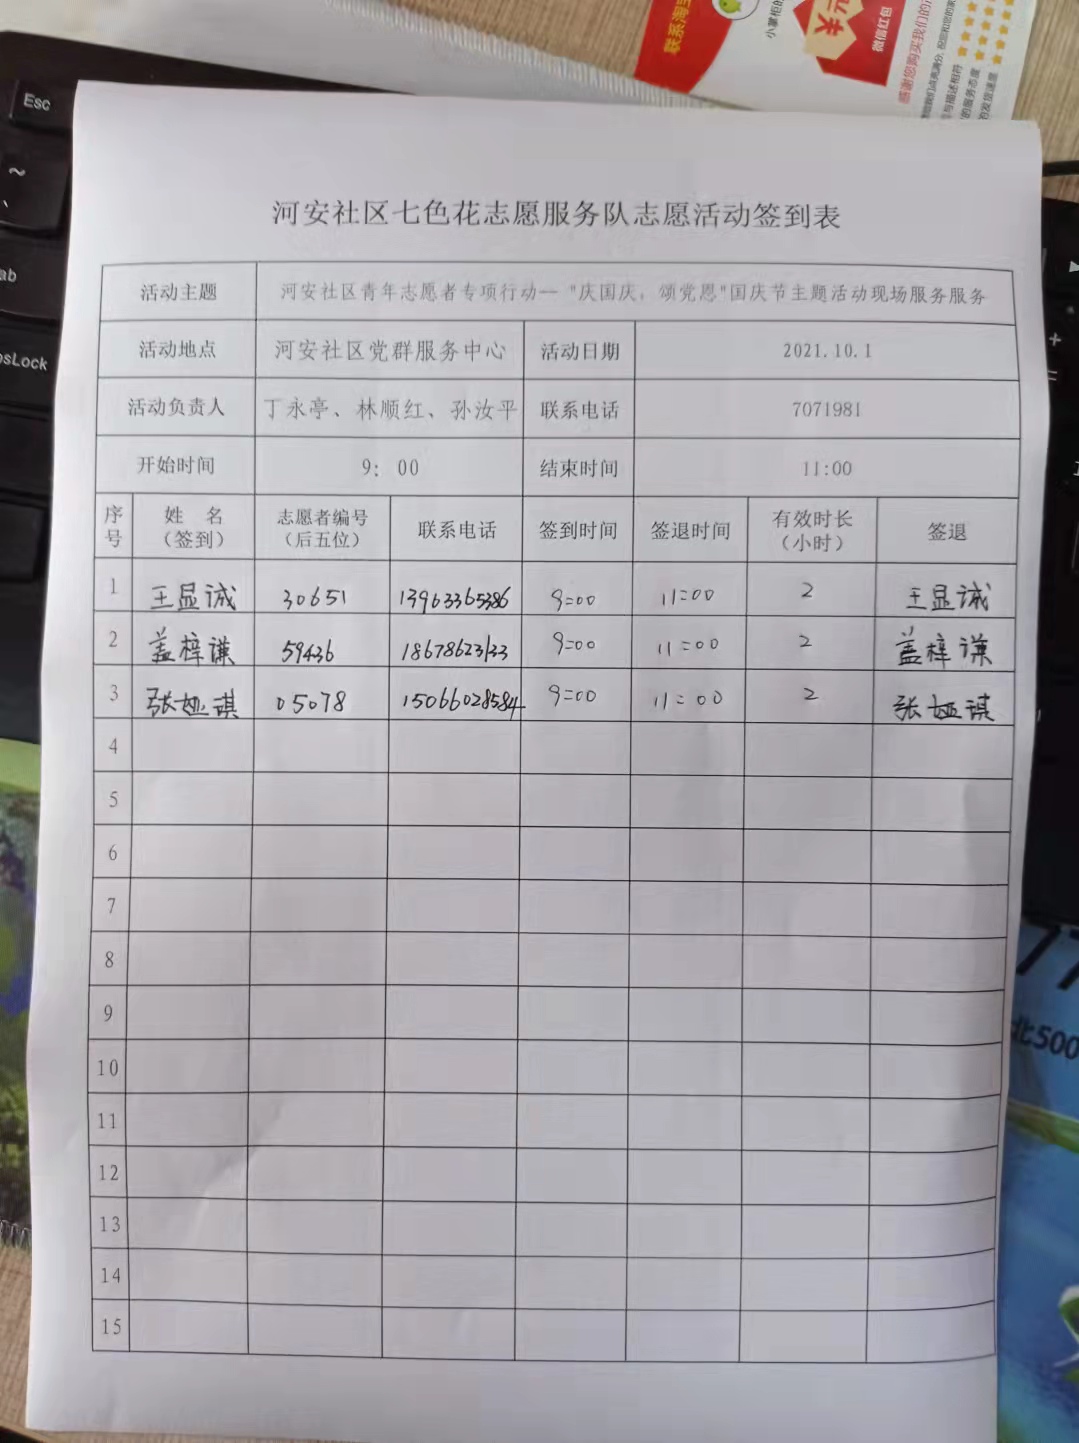 联系淘宝
微信红包
感谢您购买我们的
与描述相符
的服务态度
的发货速度
Esc
~
ab
psLock
河安社区七色花志愿服务队志愿活动签到表
活动主题 河安社区青年志愿者专项行动—"庆国庆，颂党恩"国庆节主题活动现场服务服务
活动地点 河安社区党群服务中心 活动日期 2021.10.1
活动负责人 丁永亭、林顺红、孙汝平 联系电话 7071981
开始时间 9：00 结束时间 11:00
序号 姓 名（签到） 志愿者编号（后五位） 联系电话 签到时间 签退时间 有效时长（小时） 签退
1 王显诚 30651 13963365386 9=00 11=00 2 王显诚
2 盖梓谦 59436 18678623133 9=00 11=00 2 盖梓谦
3 张娅琪 05078 15066028584 9=00 11=00 2 张娅琪
4
5
6
7
8
9
10
11
12
13
14
15
北500